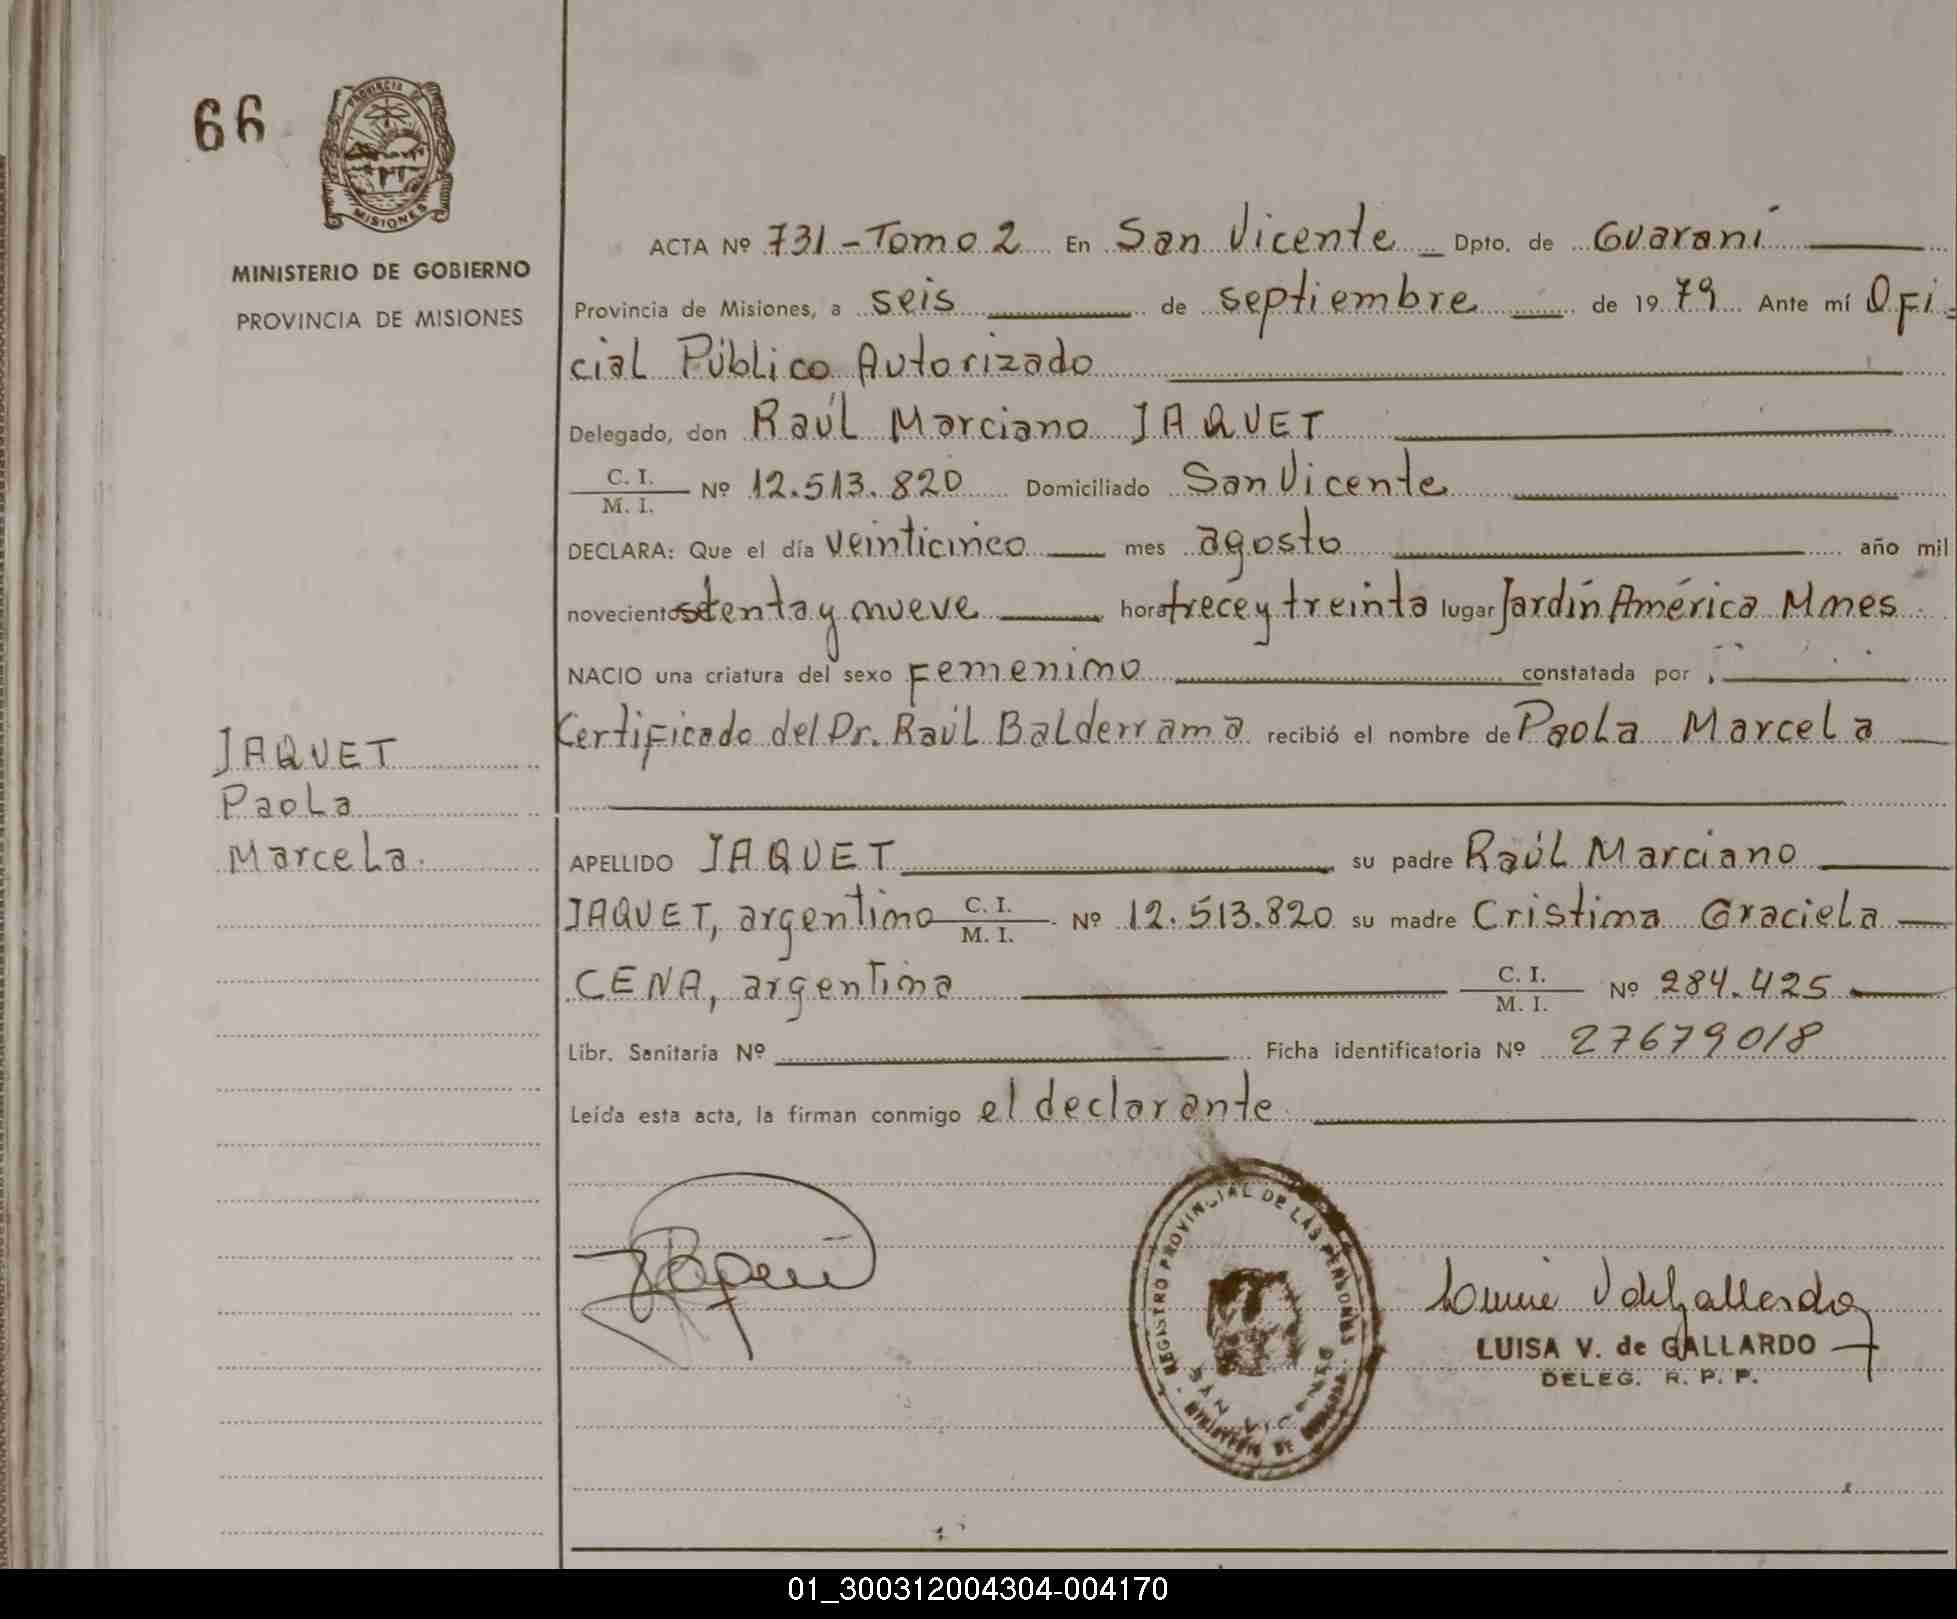 66
PROVINCIA DE
MISIONES
MINISTERIO DE GOBIERNO
PROVINCIA DE MISIONES
JAQUET
Paola
Marcela.
ACTA Nº 731 - Tomo 2 En San Vicente Dpto. de Guaraní
Provincia de Misiones, a seis de septiembre de 19 79 Ante mí Ofi-
cial Público Autorizado
Delegado, don Raúl Marciano JAQUET
C. I. / M. I. Nº 12.513.820 Domiciliado San Vicente
DECLARA: Que el día veinticinco mes agosto año mil
novecientos setenta y nueve hora trece y treinta lugar Jardín América Mnes
NACIO una criatura del sexo Femenino constatada por
Certificado del Dr. Raúl Balderrama recibió el nombre de Paola Marcela
APELLIDO JAQUET su padre Raúl Marciano
JAQUET, argentino C. I. / M. I. Nº 12.513.820 su madre Cristina Graciela
CENA, argentina C. I. / M. I. Nº 284.425
Libr. Sanitaria Nº Ficha identificatoria Nº 27679018
Leída esta acta, la firman conmigo el declarante
REGISTRO PROVINCIAL DE LAS PERSONAS
SAN VICENTE
MINISTERIO DE GOBIERNO
LUISA V. de GALLARDO
DELEG. R. P. P.
01_300312004304-004170